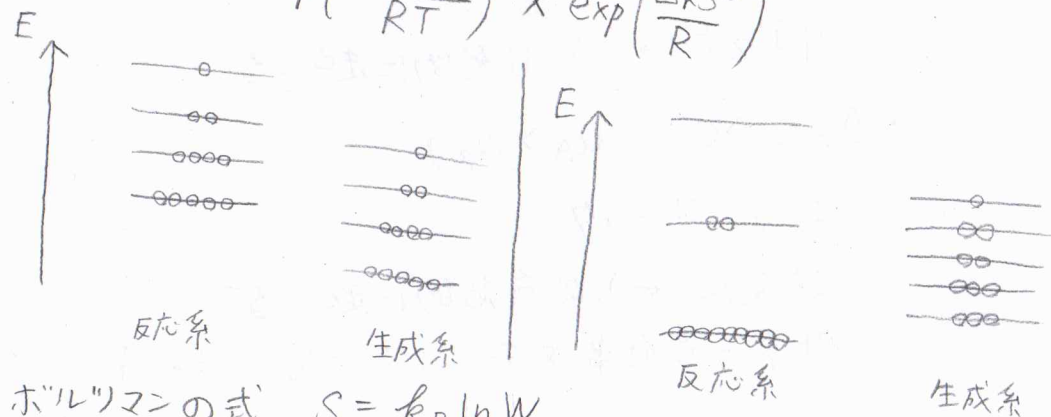 RT ) × exp( R )
E
E
反応系
生成系
反応系
生成系
ボルツマンの式 S = k_B ln W